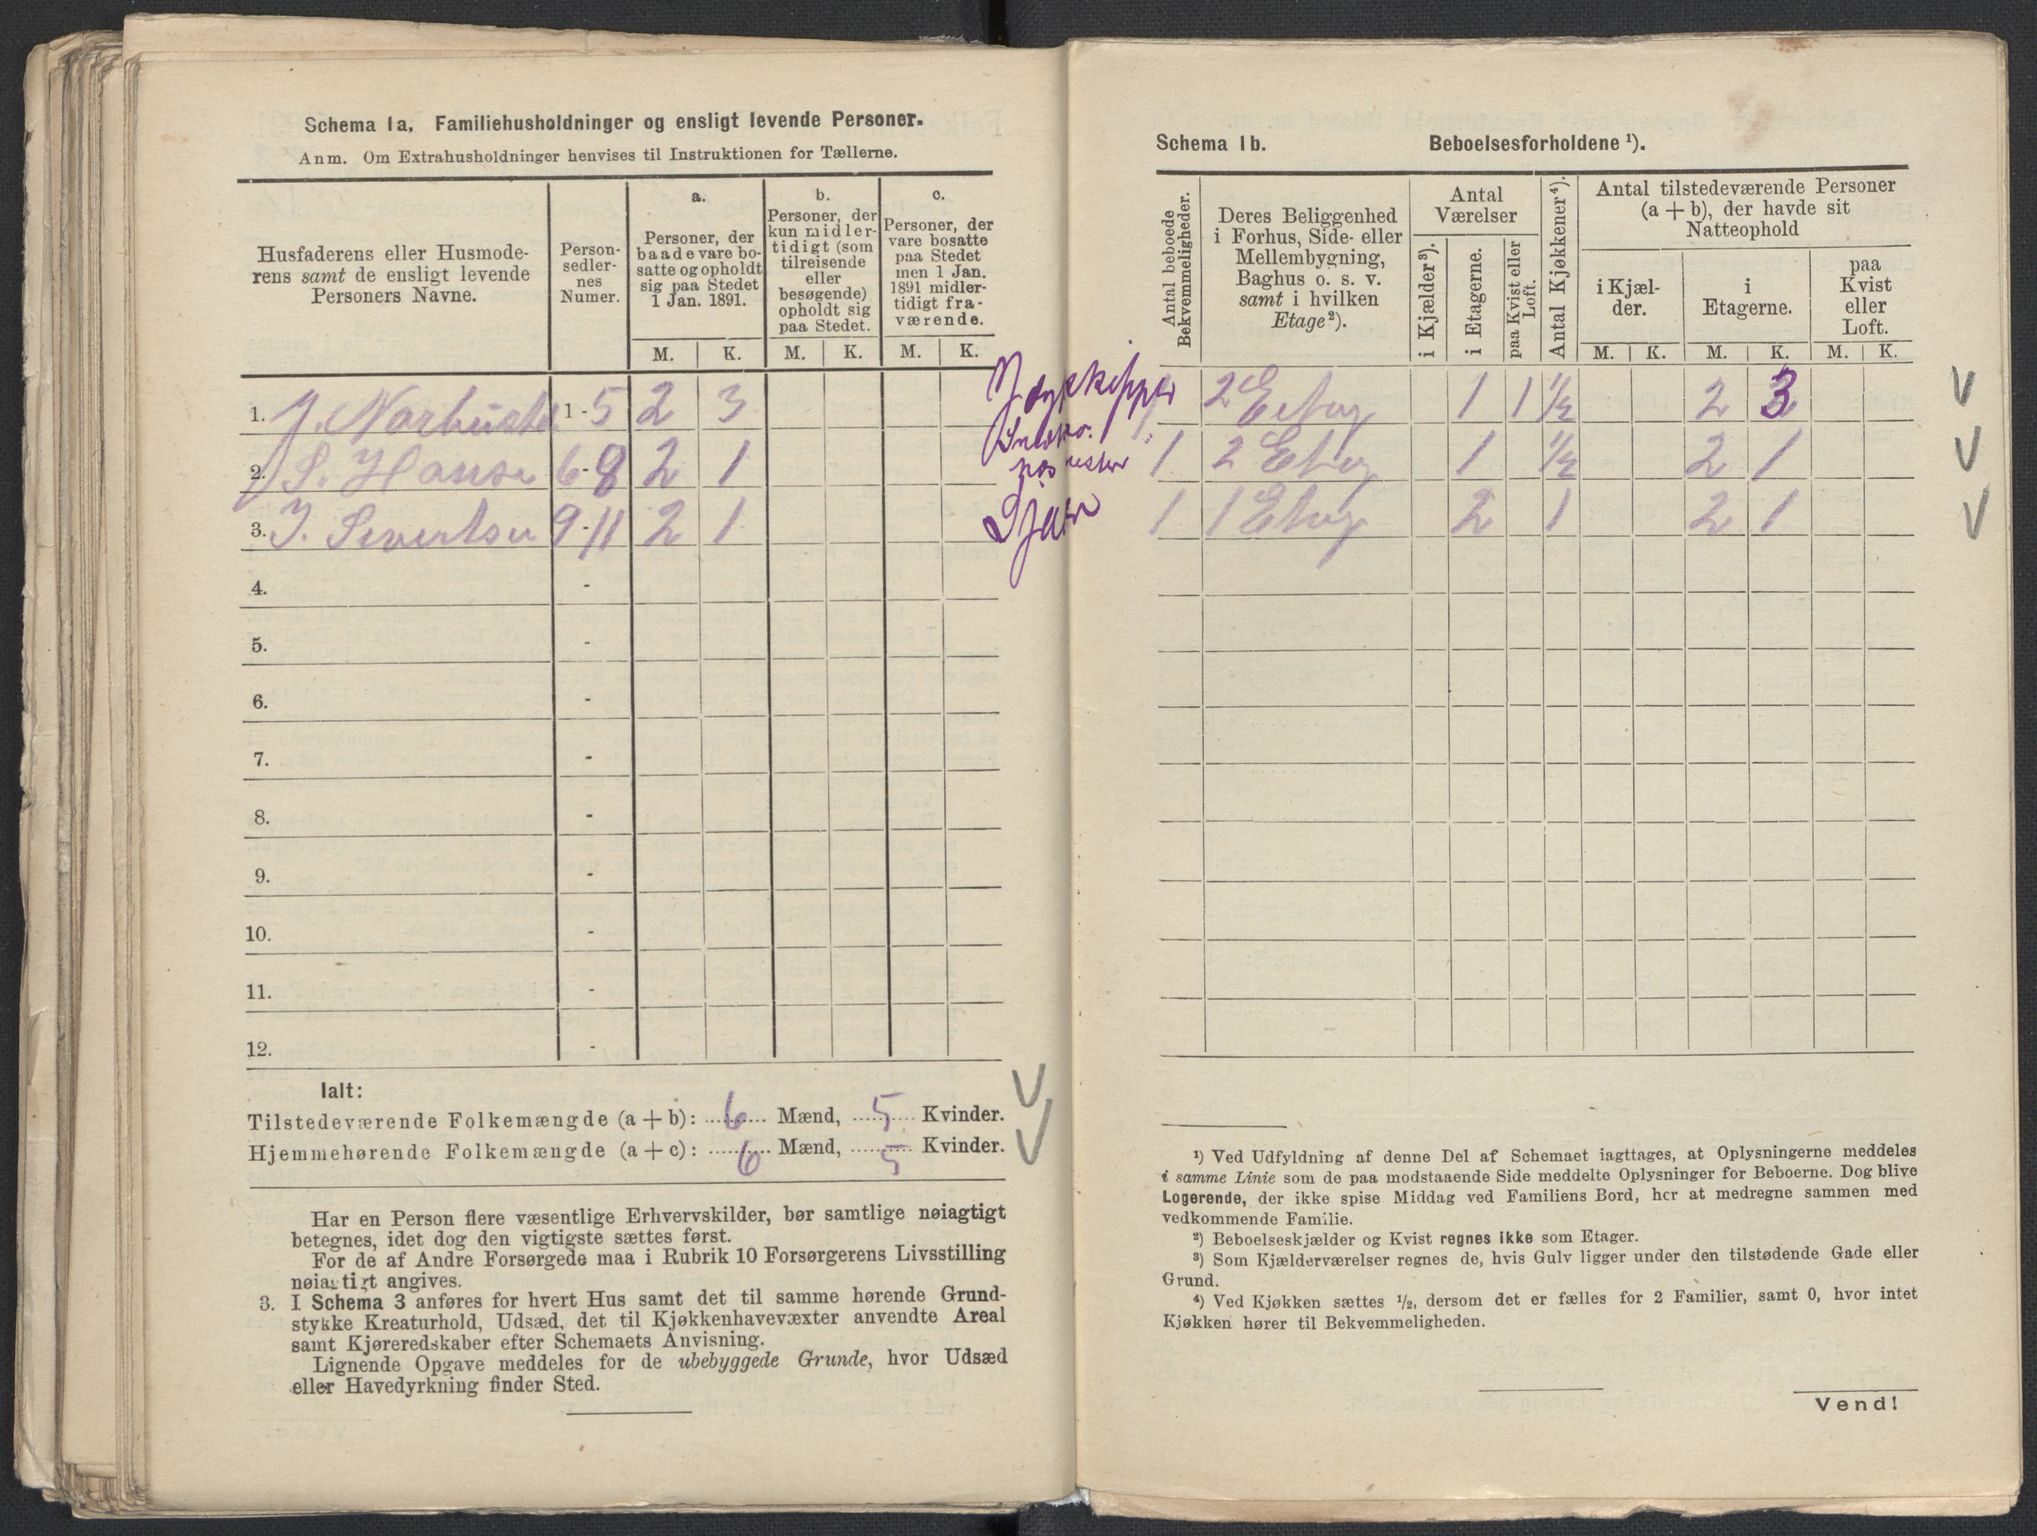 Schema 1a. Familiehusholdninger og ensligt levende Personer.
Anm. Om Extrahusholdninger henvises til Instruktionen for Tællerne.
Husfaderens eller Husmode-
rens samt de ensligt levende
Personers Navne.
Person-
sedler-
nes
Numer.
a.
Personer, der
baade vare bo-
satte og opholdt
sig paa Stedet
1 Jan. 1891.
b.
Personer, der
kun midler-
tidigt (som
tilreisende
eller
besøgende)
opholdt sig
paa Stedet.
c.
Personer, der
vare bosatte
paa Stedet
men 1 Jan.
1891 midler-
tidigt fra-
værende.
M. K. M. K. M. K.
1. J. 1 - 5 2 3
2. S. Hansen 6 - 8 2 1
3. J. Sivertsen 9 - 11 2 1
4. -
5. -
6. -
7. -
8. -
9. -
10. -
11. -
12. -
Ialt:
Tilstedeværende Folkemængde (a + b): 6 Mænd, 5 Kvinder.
Hjemmehørende Folkemængde (a + c): 6 Mænd, 5 Kvinder.
Har en Person flere væsentlige Erhvervskilder, bør samtlige nøiagtigt
betegnes, idet dog den vigtigste sættes først.
For de af Andre Forsørgede maa i Rubrik 10 Forsørgerens Livsstilling
nøiagtigt angives.
3. I Schema 3 anføres for hvert Hus samt det til samme hørende Grund-
stykke Kreaturhold, Udsæd, det til Kjøkkenhavevæxter anvendte Areal
samt Kjøreredskaber efter Schemaets Anvisning.
Lignende Opgave meddeles for de ubebyggede Grunde, hvor Udsæd
eller Havedyrkning finder Sted.
Schema 1b. Beboelsesforholdene ¹).
Antal beboede
Bekvemmeligheder.
Deres Beliggenhed
i Forhus, Side- eller
Mellembygning,
Baghus o. s. v.
samt i hvilken
Etage²).
Antal
Værelser
i Kjælder³).
i Etagerne.
paa Kvist eller
Loft.
Antal Kjøkkener⁴).
Antal tilstedeværende Personer
(a + b), der havde sit
Natteophold
i Kjæl-
der.
i
Etagerne.
paa
Kvist
eller
Loft.
M. K. M. K. M. K.
Jægtskipper 1 2 Etag 1 1 ½ 2 3
1 2 Etag 1 ½ 2 1
1 1 Etag 2 1 2 1
¹) Ved Udfyldning af denne Del af Schemaet iagttages, at Oplysningerne meddeles
i samme Linie som de paa modstaaende Side meddelte Oplysninger for Beboerne. Dog blive
Logerende, der ikke spise Middag ved Familiens Bord, her at medregne sammen med
vedkommende Familie.
²) Beboelseskjælder og Kvist regnes ikke som Etager.
³) Som Kjælderværelser regnes de, hvis Gulv ligger under den tilstødende Gade eller
Grund.
⁴) Ved Kjøkken sættes ½, dersom det er fælles for 2 Familier, samt 0, hvor intet
Kjøkken hører til Bekvemmeligheden.
Vend!